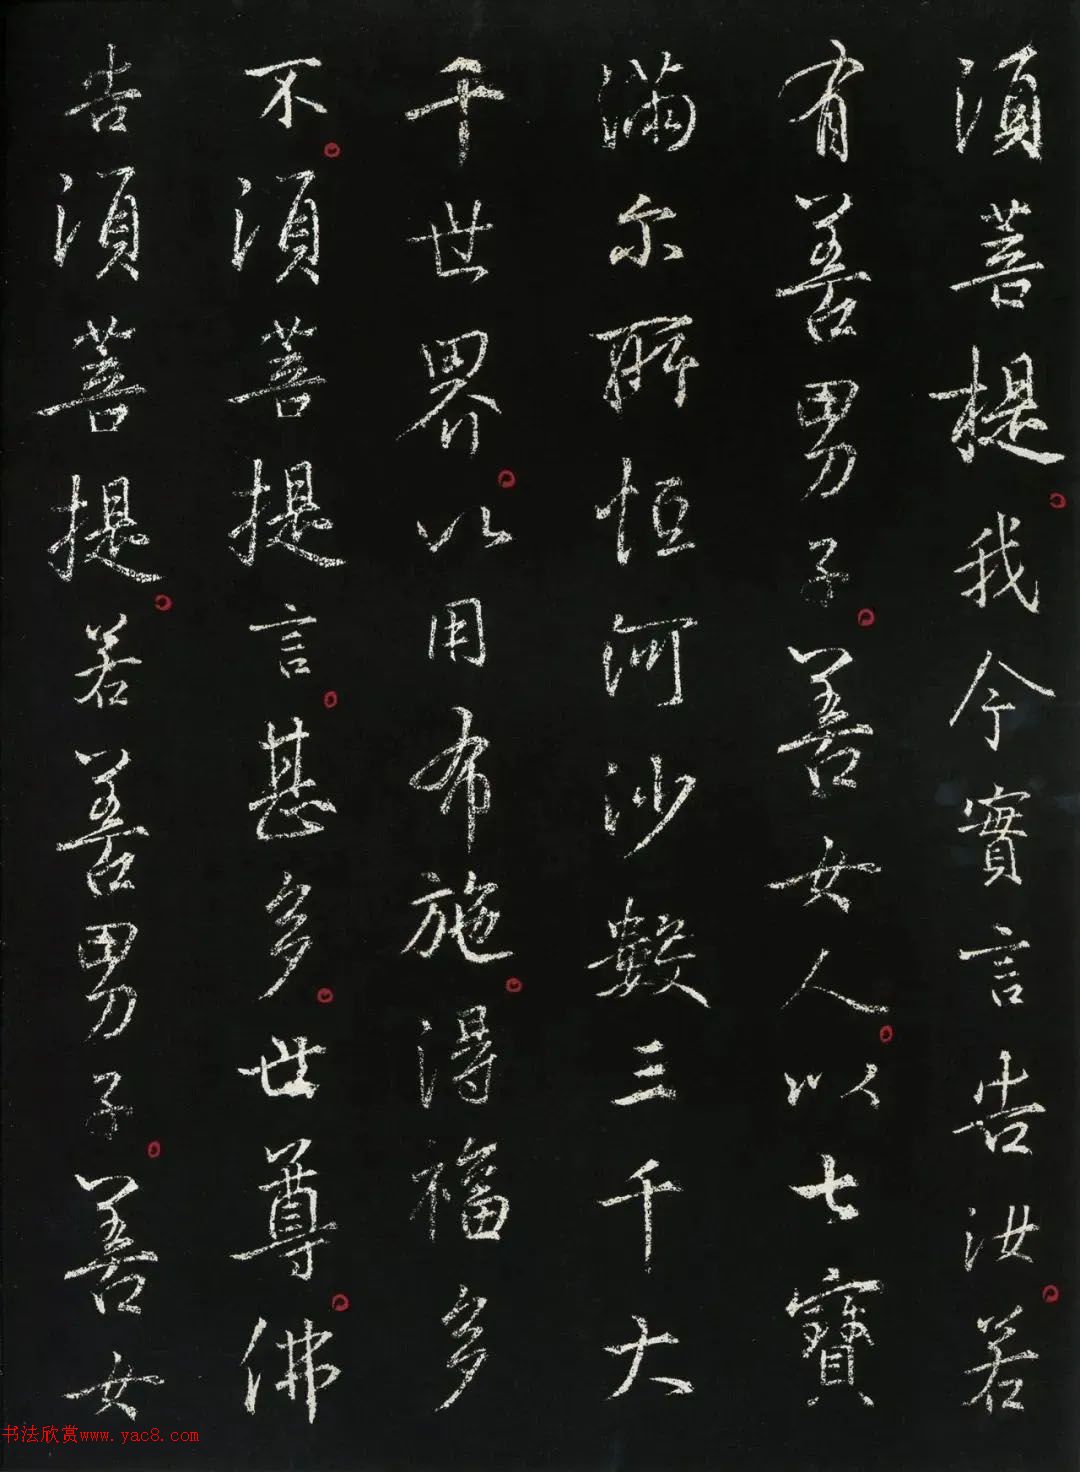 須菩提我今實言告汝若
有善男子善女人以七寶
滿尔所恒河沙數三千大
千世界以用布施得福多
不須菩提言甚多世尊佛
告須菩提若善男子善女
书法欣赏www.yac8.com